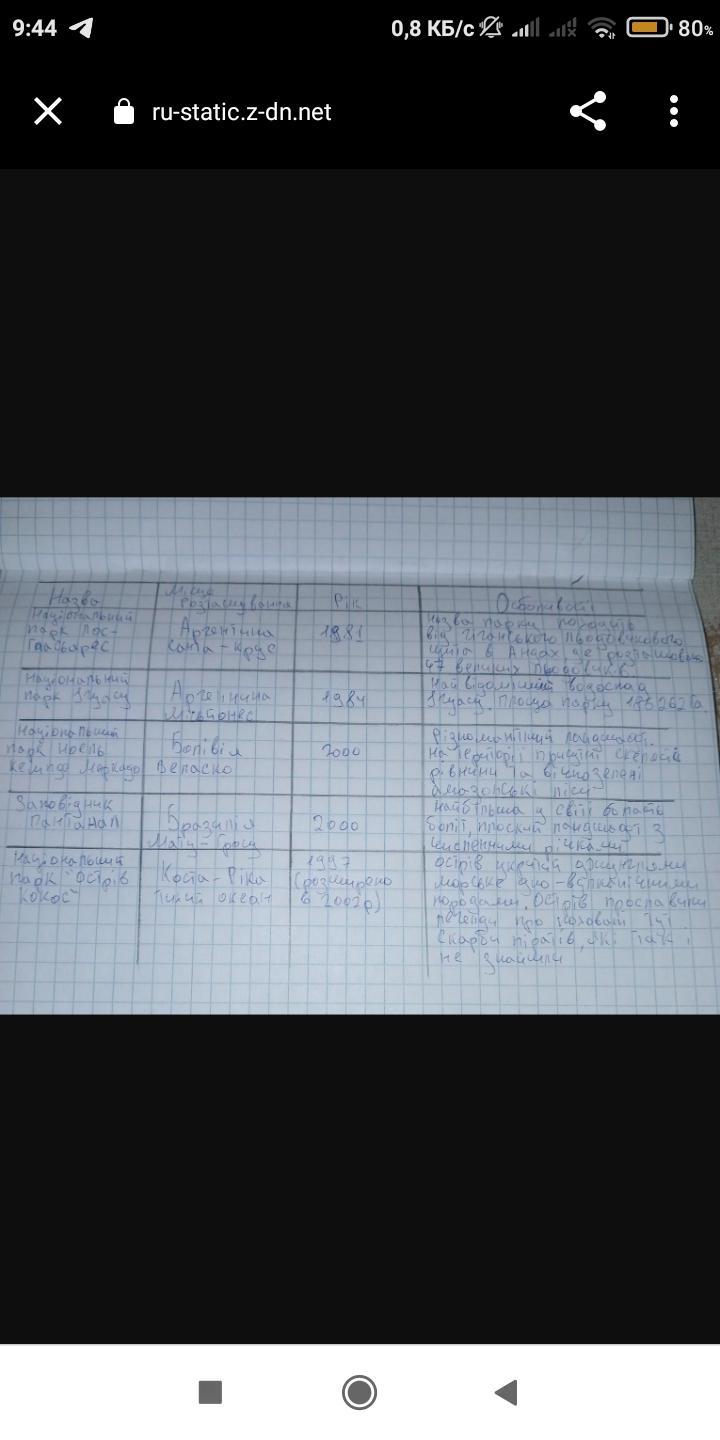 9:44 0,8 КБ/с 80%
ru-static.z-dn.net
Назва Місце розташування Рік Особливості
Національний парк Лос- Аргентина Санта-Крус 1981
Назва парку походить
від гіганського льодовикового
щита в Андах де розташовано
47 великих льодовиків
Національний парк Ігуасу Аргентина 1984
Найвідоміший водоспад
Ігуасу. Площа парку
Національний парк Ноель Кемпф Меркадо Болівія Веласко 2000
Різноманітний ландшафт.
На території присутні
рівнини та вічнозелені
амазонські ліси
Заповідник Пантанал Бразилія 2000
Найбільша у світі
плоский ландшафт з
численними річками
Національний парк "Острів Кокос" Коста-Ріка Тихий океан 1997 (розширено в 2002р)
острів
морське дно
породами. Острів прославили
легенди про заховані тут
Скарби піратів, які так і
не знайшли